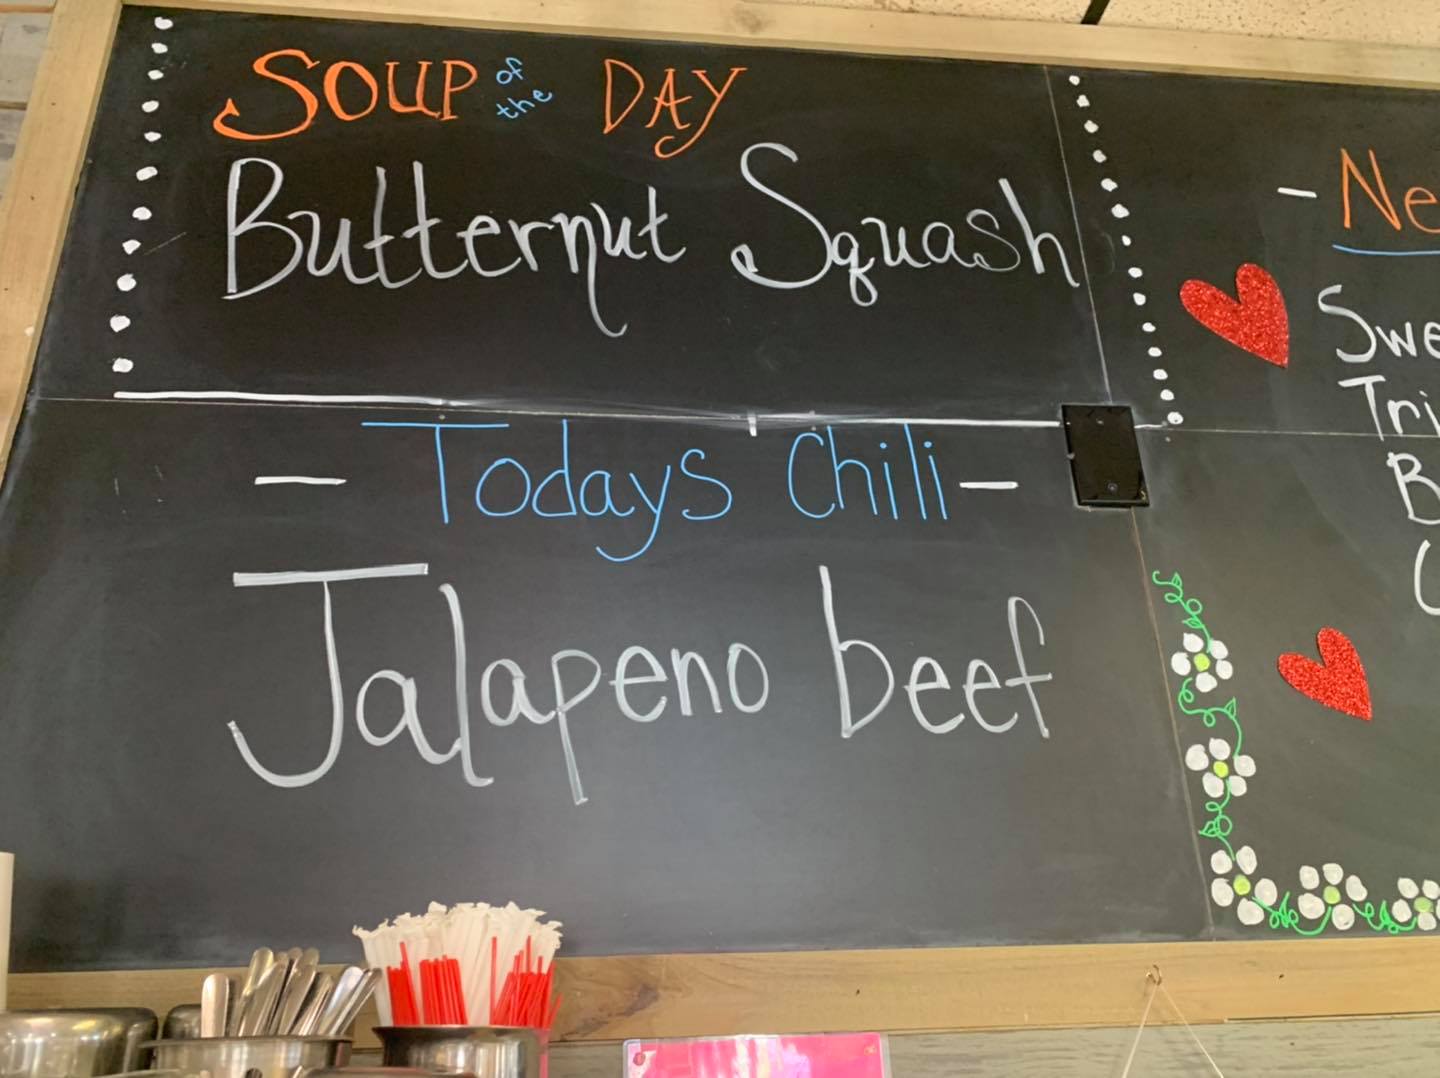 SOUP of the DAY
Butternut Squash
- Todays Chili -
Jalapeno beef